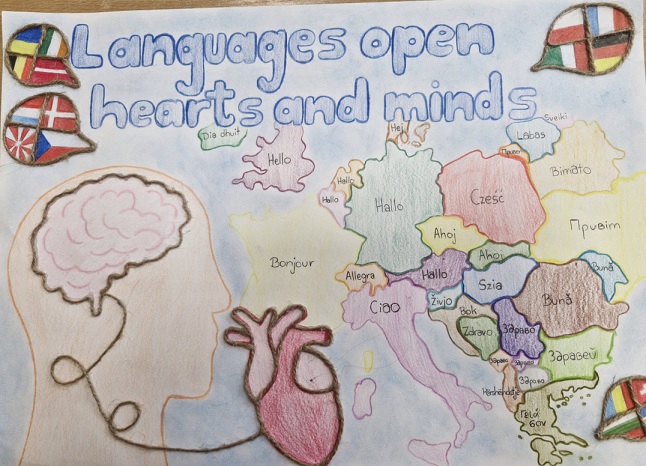 Languages open
hearts and minds
Dia dhuit
Hello
Hej
Sveiki
Labas
Привет
Bimato
Hallo
Hallo
Hallo
Cześć
Привіт
Bonjour
Ahoj
Ahoj
Allegra
Hallo
Szia
Bună
Bună
Ciao
Živjo
Bok
Zdravo
Здраво
Здравей
Здраво
Përshëndetje
Γειά
σου